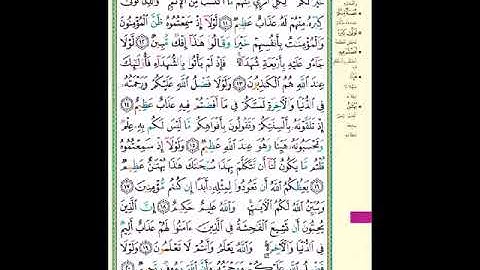 خَيْرٌ لَّكُمْ لِكُلِّ ٱمْرِئٍ مِّنْهُم مَّا ٱكْتَسَبَ مِنَ ٱلْإِثْمِ وَٱلَّذِى تَوَلَّىٰ
كِبْرَهُۥ مِنْهُمْ لَهُۥ عَذَابٌ عَظِيمٌ ١١ لَّوْلَآ إِذْ سَمِعْتُمُوهُ ظَنَّ ٱلْمُؤْمِنُونَ
وَٱلْمُؤْمِنَٰتُ بِأَنفُسِهِمْ خَيْرًا وَقَالُوا۟ هَٰذَآ إِفْكٌ مُّبِينٌ ١٢ لَّوْلَا
جَآءُو عَلَيْهِ بِأَرْبَعَةِ شُهَدَآءَ فَإِذْ لَمْ يَأْتُوا۟ بِٱلشُّهَدَآءِ فَأُو۟لَٰٓئِكَ
عِندَ ٱللَّهِ هُمُ ٱلْكَٰذِبُونَ ١٣ وَلَوْلَا فَضْلُ ٱللَّهِ عَلَيْكُمْ وَرَحْمَتُهُۥ
فِى ٱلدُّنْيَا وَٱلْءَاخِرَةِ لَمَسَّكُمْ فِى مَآ أَفَضْتُمْ فِيهِ عَذَابٌ عَظِيمٌ ١٤
إِذْ تَلَقَّوْنَهُۥ بِأَلْسِنَتِكُمْ وَتَقُولُونَ بِأَفْوَاهِكُم مَّا لَيْسَ لَكُم بِهِۦ عِلْمٌ
وَتَحْسَبُونَهُۥ هَيِّنًا وَهُوَ عِندَ ٱللَّهِ عَظِيمٌ ١٥ وَلَوْلَآ إِذْ سَمِعْتُمُوهُ
قُلْتُم مَّا يَكُونُ لَنَآ أَن نَّتَكَلَّمَ بِهَٰذَا سُبْحَٰنَكَ هَٰذَا بُهْتَٰنٌ عَظِيمٌ
١٦ يَعِظُكُمُ ٱللَّهُ أَن تَعُودُوا۟ لِمِثْلِهِۦٓ أَبَدًا إِن كُنتُم مُّؤْمِنِينَ ١٧
وَيُبَيِّنُ ٱللَّهُ لَكُمُ ٱلْءَايَٰتِ وَٱللَّهُ عَلِيمٌ حَكِيمٌ ١٨ إِنَّ ٱلَّذِينَ
يُحِبُّونَ أَن تَشِيعَ ٱلْفَٰحِشَةُ فِى ٱلَّذِينَ ءَامَنُوا۟ لَهُمْ عَذَابٌ أَلِيمٌ
فِى ٱلدُّنْيَا وَٱلْءَاخِرَةِ وَٱللَّهُ يَعْلَمُ وَأَنتُمْ لَا تَعْلَمُونَ ١٩ وَلَوْلَا
فَضْلُ ٱللَّهِ عَلَيْكُمْ وَرَحْمَتُهُۥ وَأَنَّ ٱللَّهَ رَءُوفٌ رَّحِيمٌ